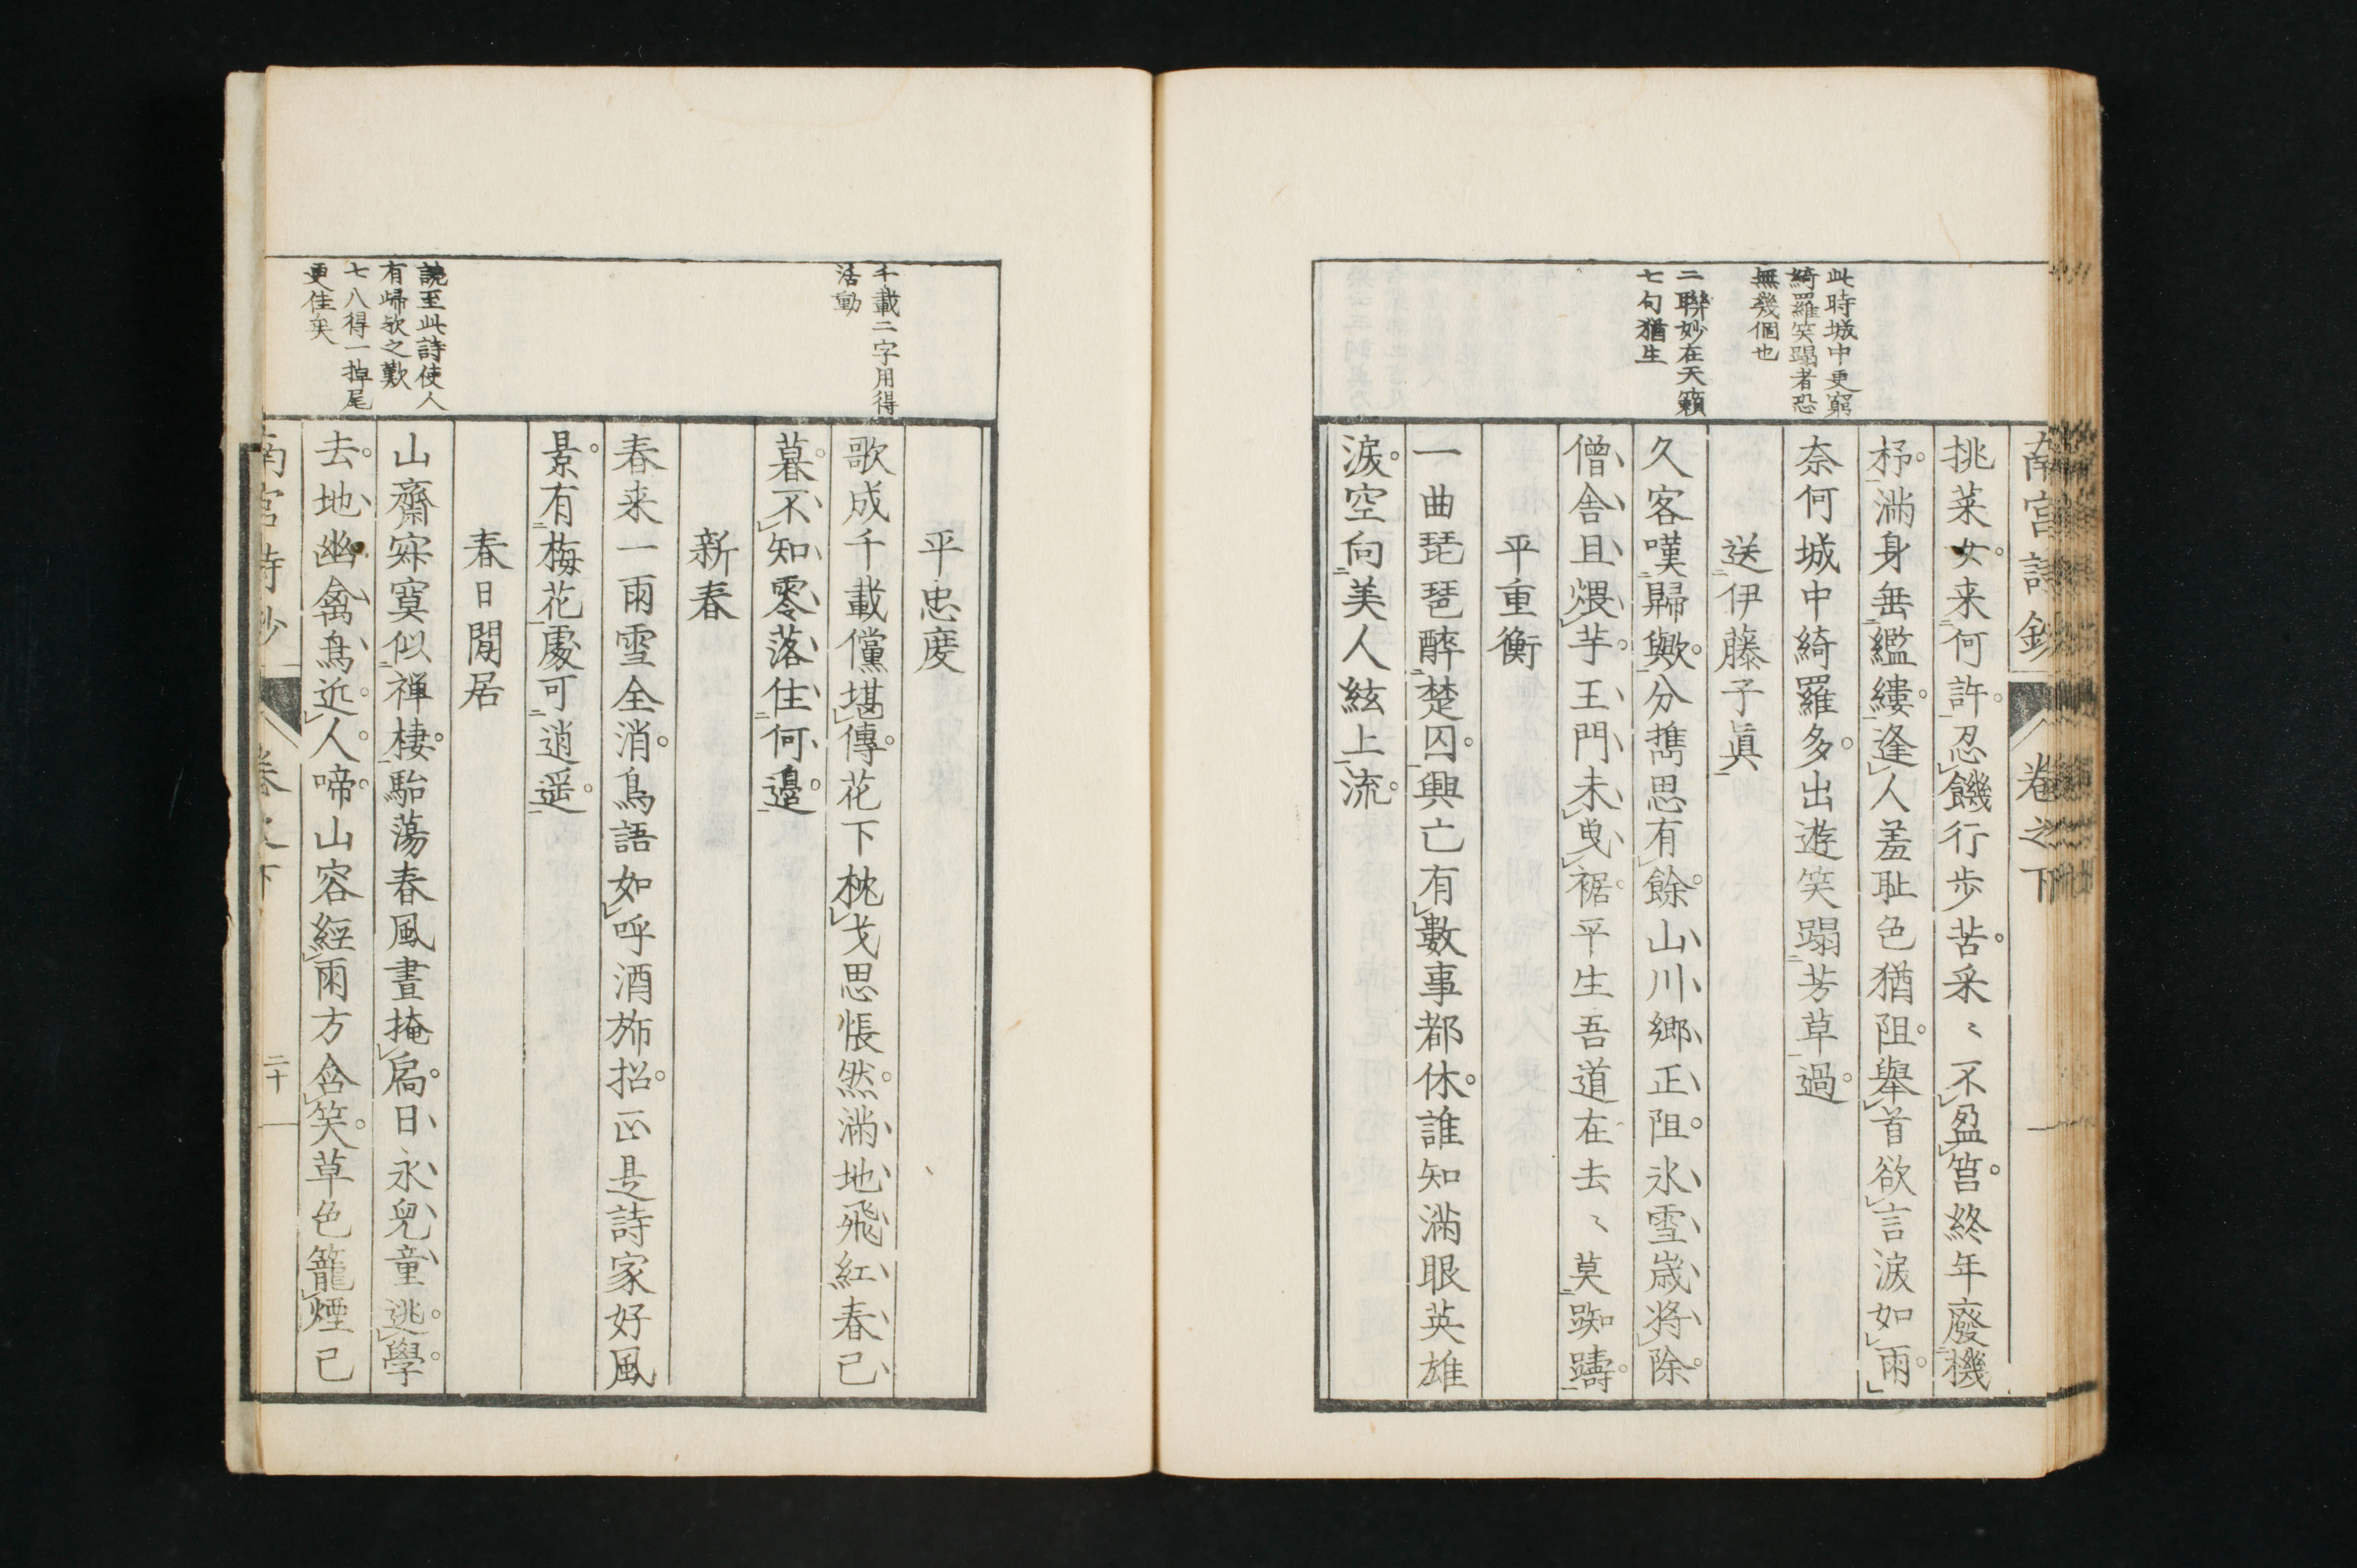 南宮詩鈔 卷之下
此時城中更窮
綺羅笑蹋者恐
無幾個也
二聯妙在天籟
七句猶生
挑菜女来何許忍饑行步苦采〻不盈筥終年廢機
杼滿身無繿縷逢人羞耻色猶阻舉首欲言淚如雨
奈何城中綺羅多出遊笑蹋芳草過
送伊藤子眞
久客嘆歸歟分攜思有餘山川郷正阻氷雪歲將除
僧舎且煨芋王門未曳裾平生吾道在去〻莫踟躊
平重衡
一曲琵琶醉楚囚興亡有數事都休誰知滿眼英雄
淚空向美人絃上流
千載二字用得
活動
讀至此詩使人
有歸欤之歎
七八得一掉尾
更佳矣
平忠度
歌成千載儻堪傳花下枕戈思悵然滿地飛紅春已
暮不知零落住何邊
新春
春来一雨雪全消鳥語如呼酒斾招正是詩家好風
景有梅花處可逍遥
春日閒居
山齋寂寞似禅棲駘蕩春風晝掩扃日永兒童逃學
去地幽禽鳥近人啼山容經雨方含笑草色籠煙已
南宮詩鈔 卷之下 二十